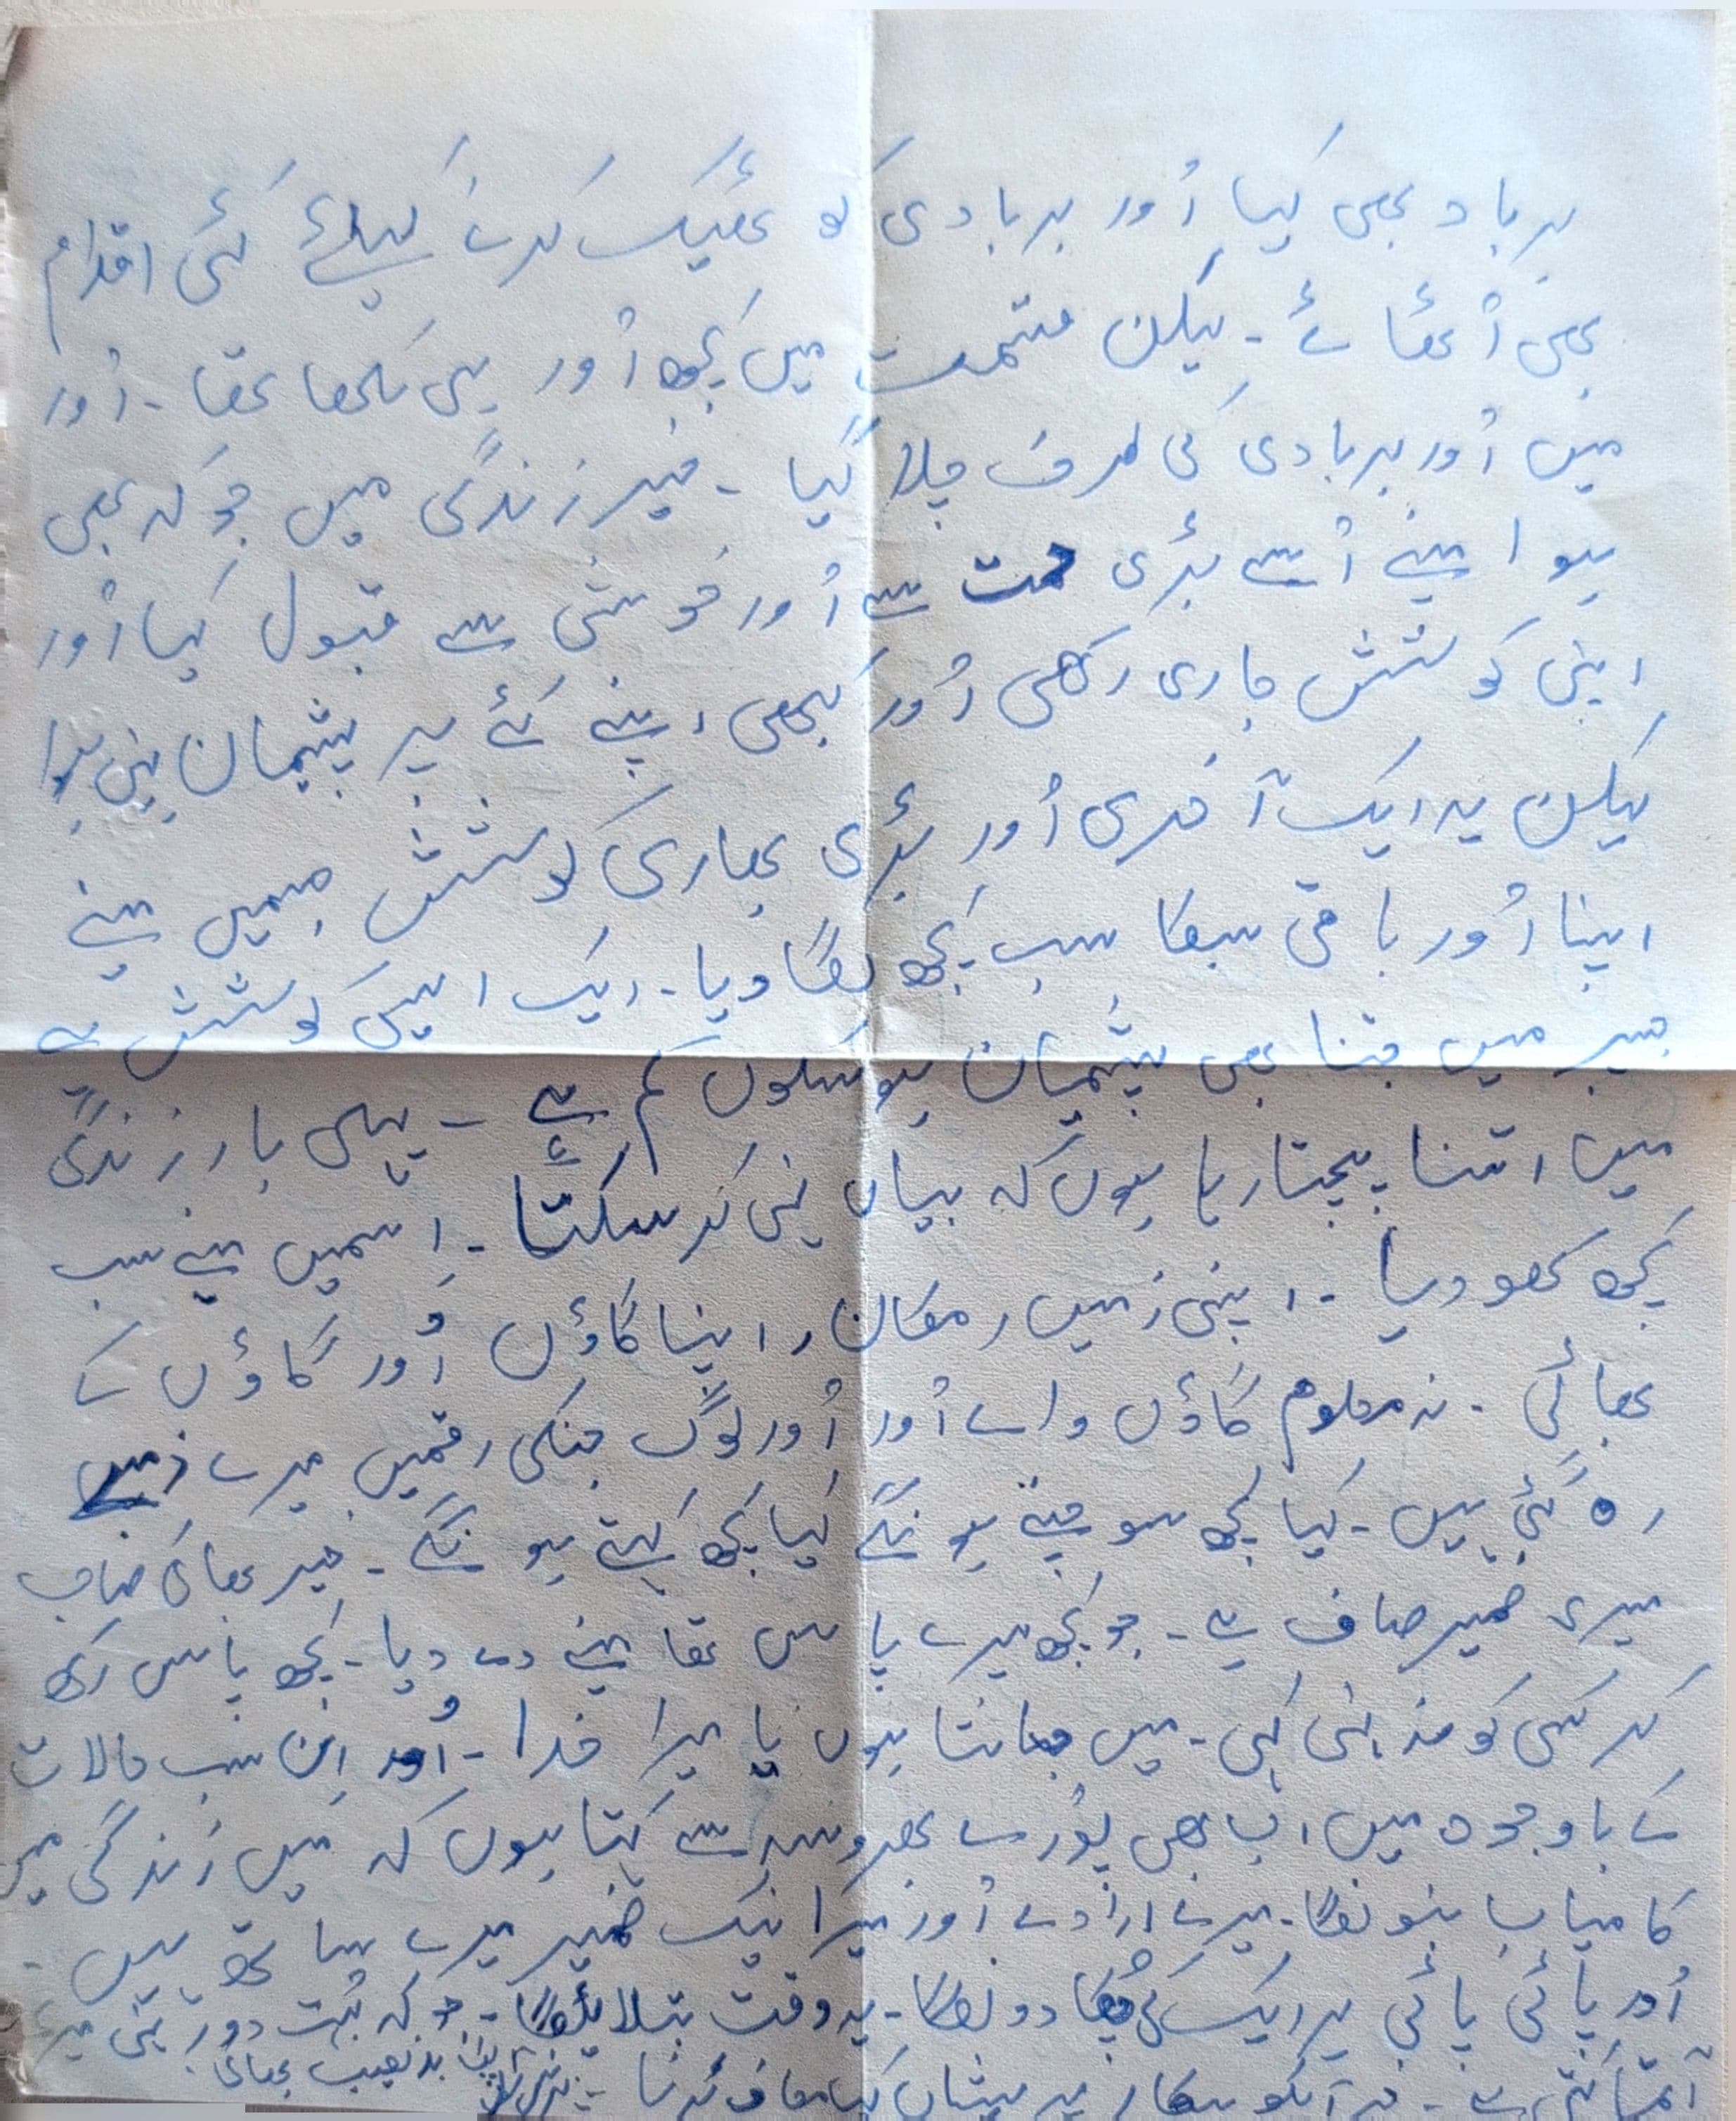 برباد بھی کیا اُور بربادی کو ٹھیک کرنے کیلئے کئی اقدام
بھی اُٹھائے ۔ لیکن قسمت میں کچھ اُور ہی لکھا تھا ۔ اُور
میں اُور بربادی کی طرف چلا گیا ۔ خیر زندگی میں جو کہ بھی
ہوا مینے اُسے بڑی ہمت سے اُور خوشی سے قبول کیا اُور
اپنی کوشش جاری رکھی اُور کبھی اپنے کئے پر پشیمان نہیں ہوا
لیکن یہ ایک آخری اُور بڑی بھاری کوشش جسمیں مینے
اپنا اُور باقی سبکا سب کچھ لگا دیا ۔ ایک ایسی کوشش ہے
جسپر میں جتنا بھی پشیمان ہو سکوں کم ہے ۔ پہلی بار زندگی
میں اتنا پچھتا رہا ہوں کہ بیان نہیں کر سکتا ۔ اسمیں مینے سب
کچھ کھو دیا ۔ اپنی زمیں ، مکان ، اپنا گاؤں اُور گاؤں کے
بھائی ۔ نہ معلوم گاؤں والے اُور اُور لوگ جنکی رقمیں میرے ذمے
رہ گئی ہیں ۔ کیا کچھ سوچتے ہو نگے کیا کچھ کہتے ہو نگے ۔ خیر بھائی صاحب
میری ضمیر صاف ہے ۔ جو کچھ میرے پاس تھا مینے دے دیا ۔ کچھ پاس رکھ
کر کسی کو نہیں کہی ۔ میں جانتا ہوں یا میرا خدا ۔ اُور اِن سب حالات
کے باوجود میں اب بھی پُورے بھروسہ سے کہتا ہوں کہ میں زندگی میں
کامیاب ہنونگا ۔ میرے ارادے اُور میرا نیک ضمیر میرے ساتھ ہیں ۔
اُور پائی پائی ہر ایک کی چُکا دونگا ۔ یہ وقت بتلائیگا ۔ جو کہ بُہت دور نہیں میرے
آپکو بیکار پریشان کیا معاف کرنا
آپکا بدنصیب بھائی